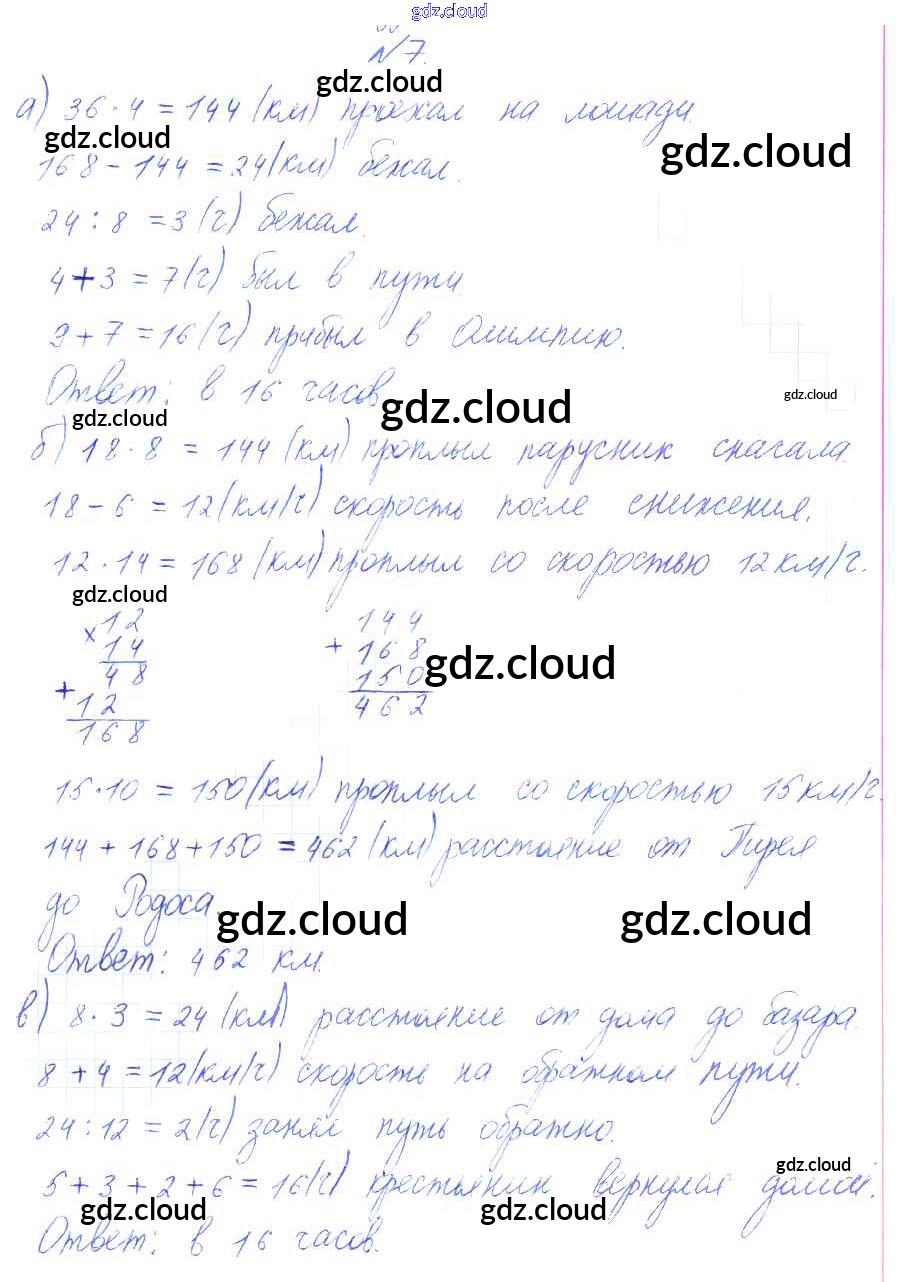 gdz.cloud
№7.
gdz.cloud
а) 36·4 = 144 (км) проехал на лошади.
gdz.cloud
gdz.cloud
168 - 144 = 24 (км) бежал.
24 : 8 = 3 (ч) бежал.
4 + 3 = 7 (ч) был в пути.
9 + 7 = 16 (ч) прибыл в Олимпию.
Ответ: в 16 часов.
gdz.cloud
gdz.cloud
gdz.cloud
б) 18·8 = 144 (км) проплыл парусник сначала.
18 - 6 = 12 (км/ч) скорость после снижения.
12·14 = 168 (км) проплыл со скоростью 12 км/ч.
gdz.cloud
12 144
× 14 + 168
gdz.cloud
48 150
+ 12 462
168
15·10 = 150 (км) проплыл со скоростью 15 км/ч.
144 + 168 + 150 = 462 (км) расстояние от Пирея
до Родоса.
gdz.cloud
gdz.cloud
Ответ: 462 км.
в) 8·3 = 24 (км) расстояние от дома до базара.
8 + 4 = 12 (км/ч) скорость на обратном пути.
24 : 12 = 2 (ч) занял путь обратно.
gdz.cloud
5 + 3 + 2 + 6 = 16 (ч) крестьянин вернулся домой.
gdz.cloud
gdz.cloud
Ответ: в 16 часов.